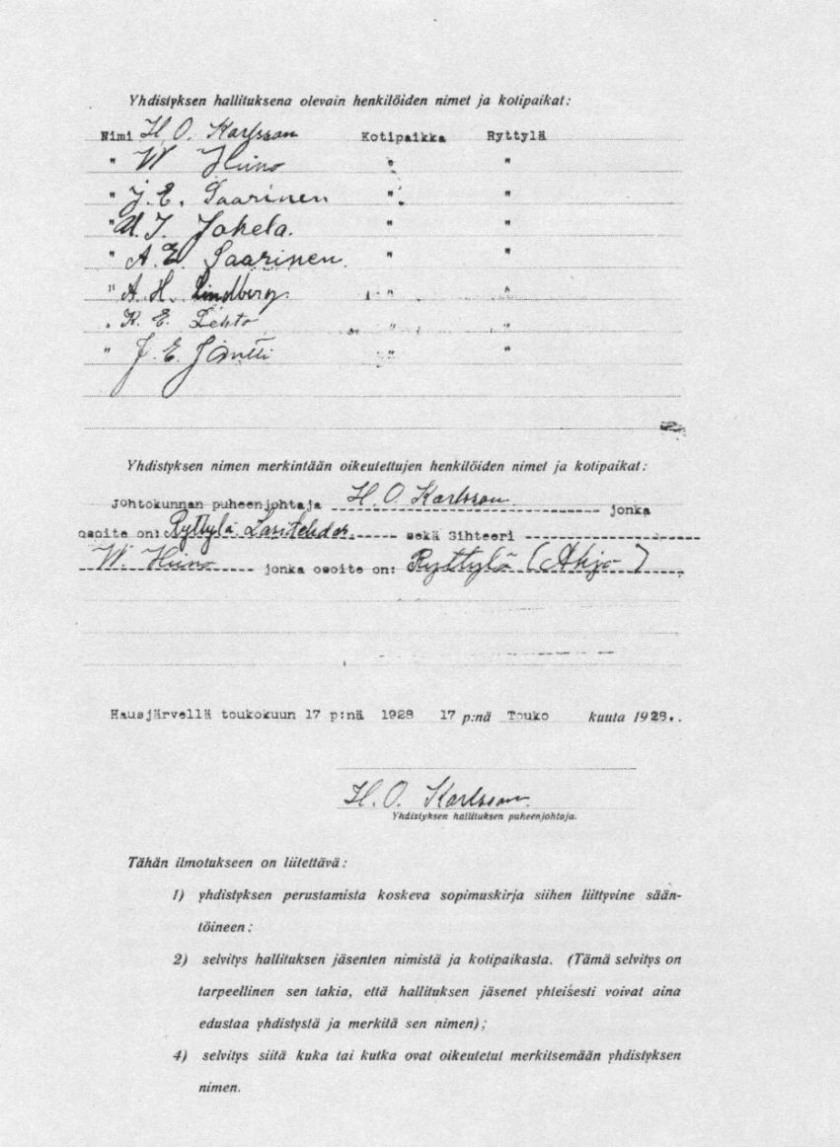 Yhdistyksen hallituksena olevain henkilöiden nimet ja kotipaikat:
Nimi H. O. Karlsson Kotipaikka Ryttylä
" W. " "
" J. E. Saarinen " "
" J. Jokela. " "
" A. E. Saarinen. " "
" A. H. Lindberg. " "
" K. E. Lehto " "
" J. E. Jäntti " "
Yhdistyksen nimen merkintään oikeutettujen henkilöiden nimet ja kotipaikat:
Johtokunnan puheenjohtaja H. O. Karlsson jonka
osoite on: Ryttylä Lasitehdas. sekä Sihteeri
W. jonka osoite on: Ryttylä
Hausjärvellä toukokuun 17 p:nä 1928 17 p:nä Touko kuuta 1928.
H. O. Karlsson.
Yhdistyksen hallituksen puheenjohtaja.
Tähän ilmotukseen on liitettävä:
1) yhdistyksen perustamista koskeva sopimuskirja siihen liittyvine sään-
töineen;
2) selvitys hallituksen jäsenten nimistä ja kotipaikasta. (Tämä selvitys on
tarpeellinen sen takia, että hallituksen jäsenet yhteisesti voivat aina
edustaa yhdistystä ja merkitä sen nimen);
4) selvitys siitä kuka tai kutka ovat oikeutetut merkitsemään yhdistyksen
nimen.